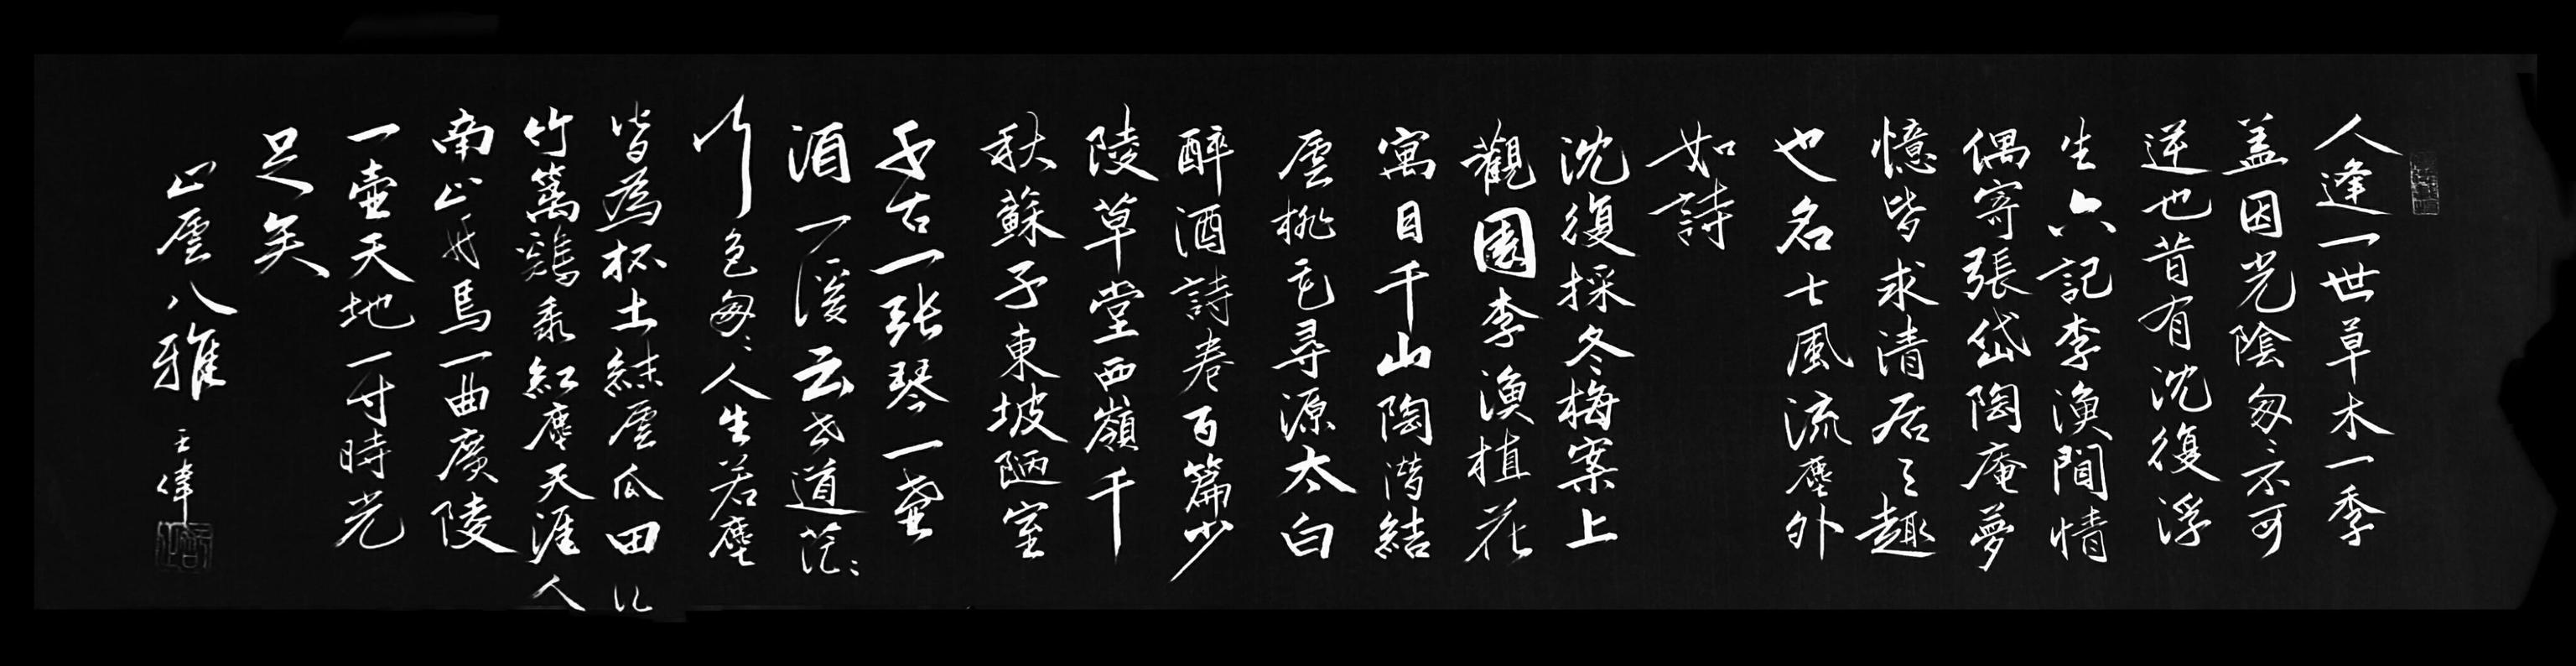 人逢一世草木一季
盖因光陰匆匆不可
逆也昔有沈復浮
生六記李漁閒情
偶寄張岱陶庵夢
憶皆求清居之趣
也名士風流塵外
如詩
沈復採冬梅案上
觀園李漁植花
寓目千山陶潜結
雲桃花尋源太白
醉酒詩卷百篇少
陵草堂西嶺千
秋蘇子東坡陋室
千古一张琴一壶
酒一溪云世道茫茫
行色匆匆人生若塵
皆為杯土結廬瓜田
竹籬鷄黍紅塵天涯人
南山
一曲廣陵
一壺天地一寸時光
足矣
山雲八雅
王偉